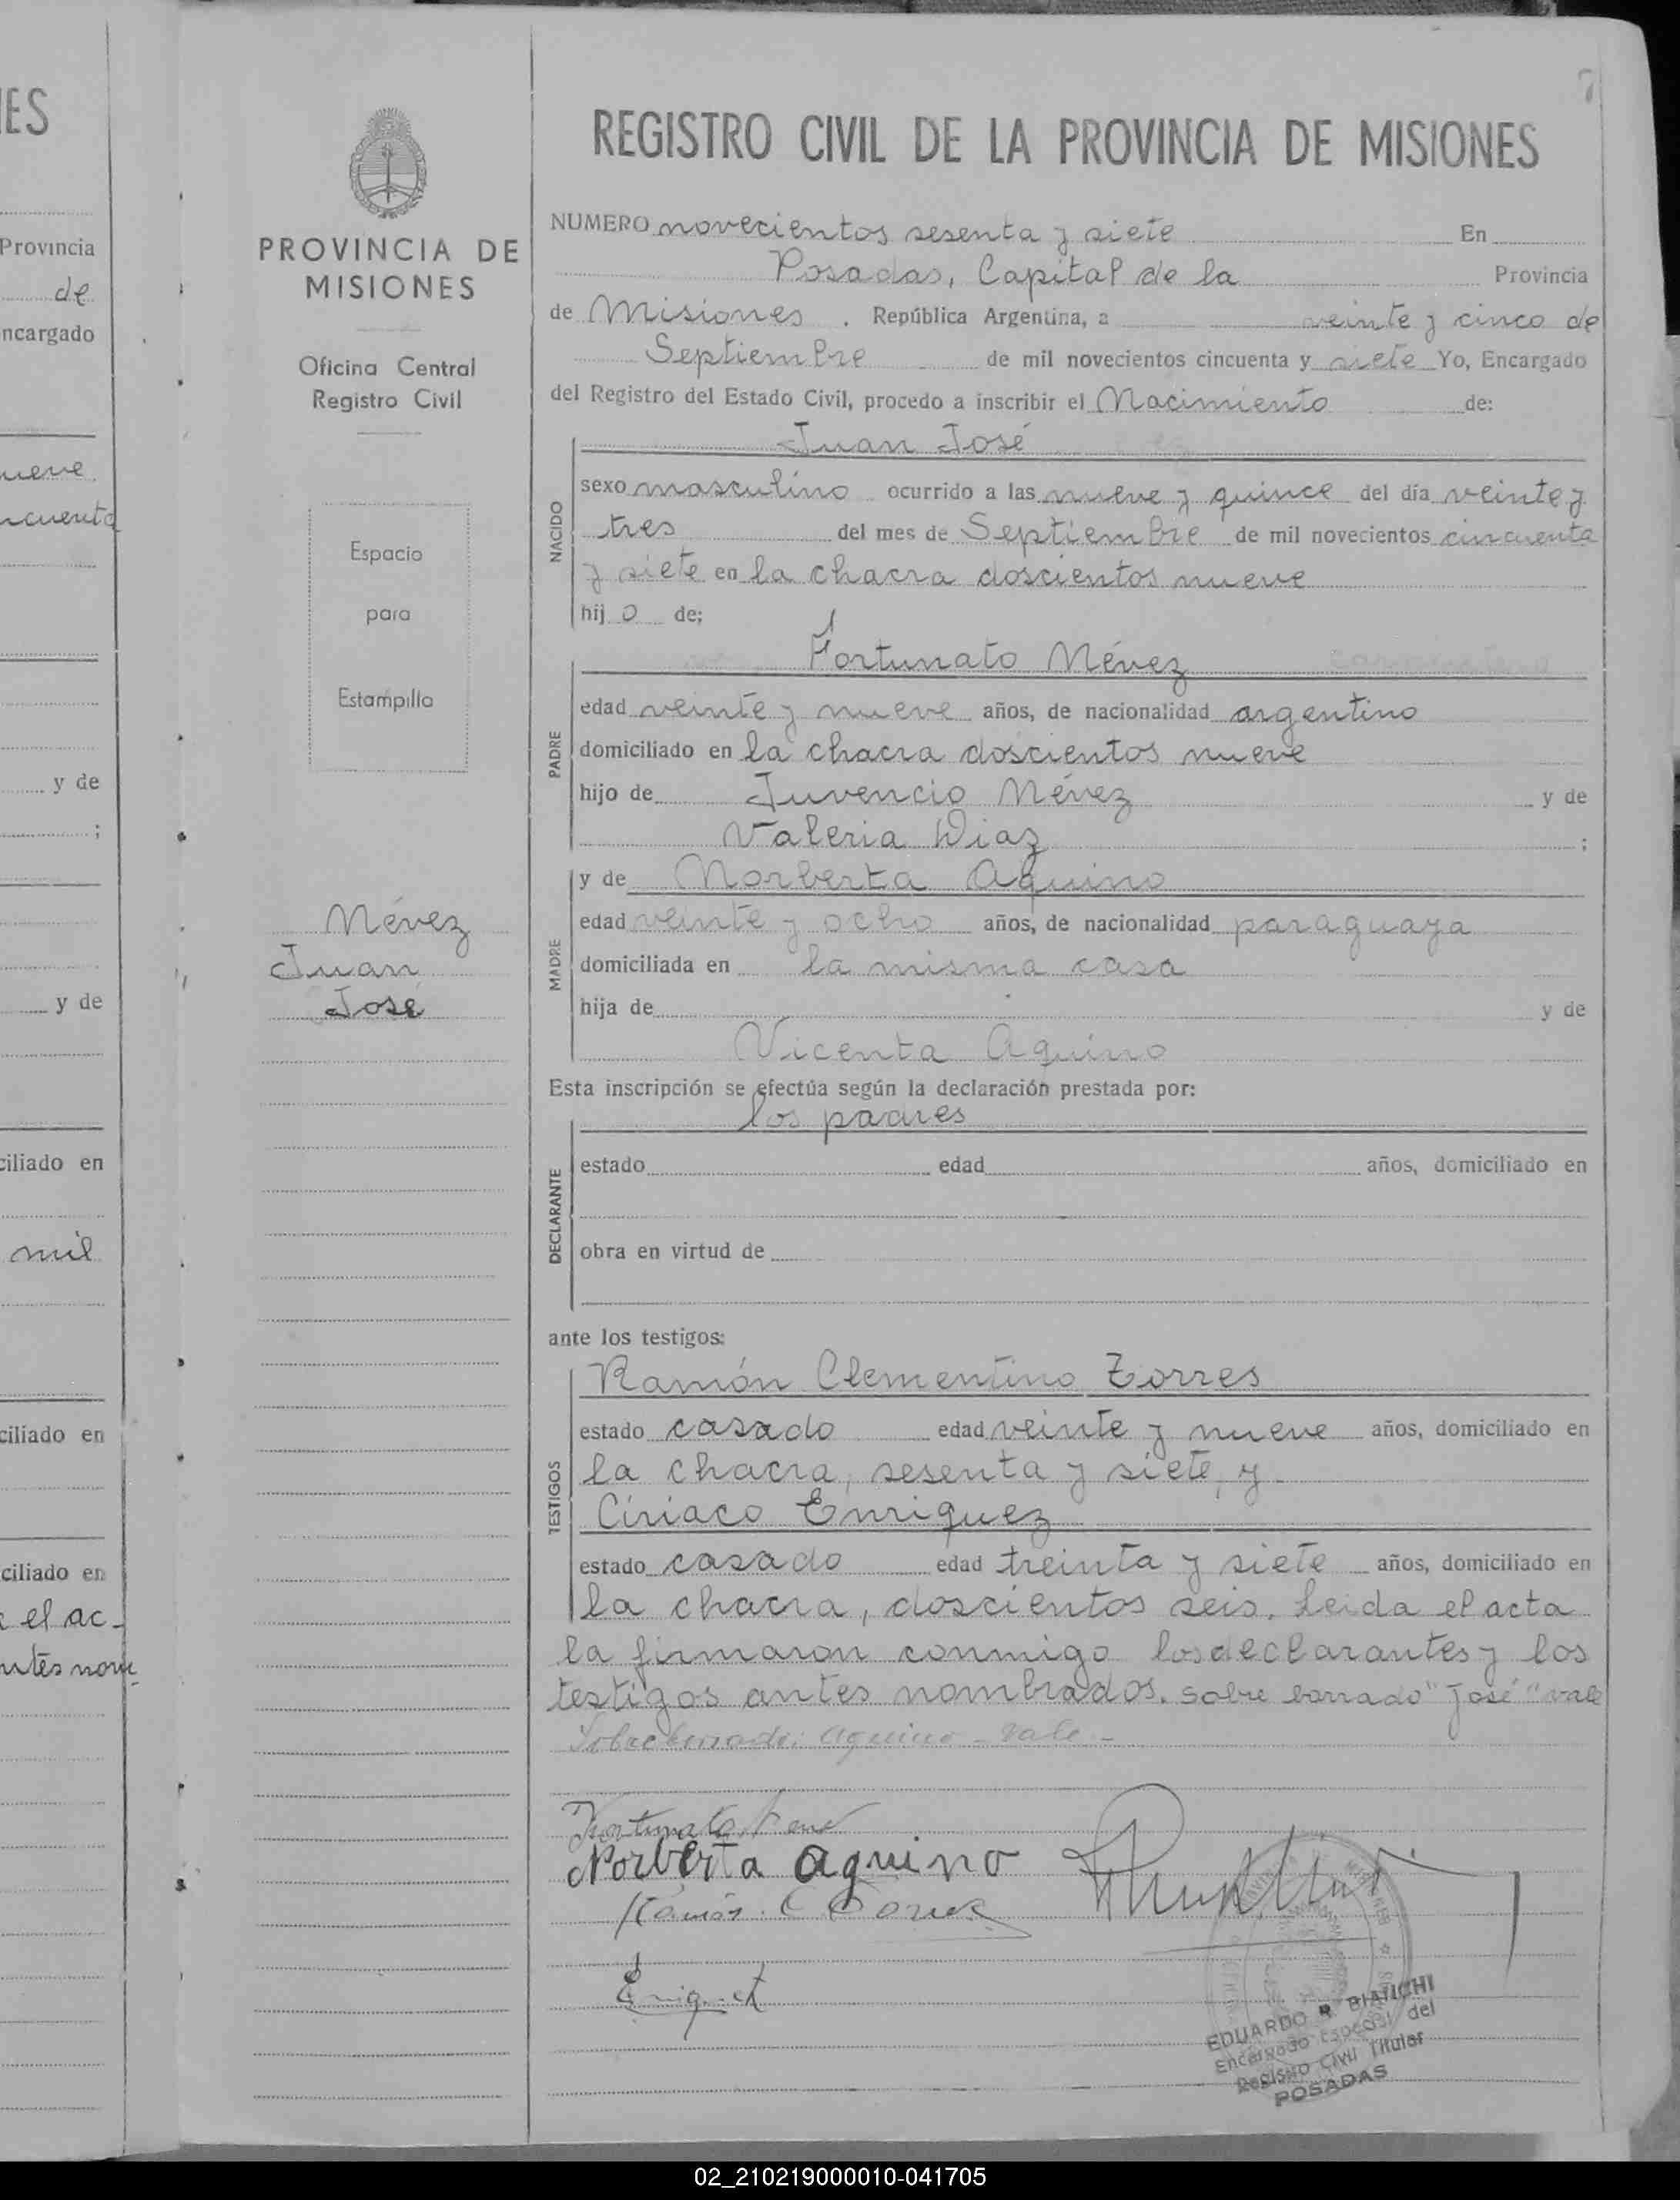 7
ES
REGISTRO CIVIL DE LA PROVINCIA DE MISIONES
PROVINCIA DE
MISIONES
Oficina Central
Registro Civil
Espacio
para
Estampilla
Névez
Juan
José
NUMERO novecientos sesenta y siete En
Posadas, Capital de la Provincia
de Misiones . República Argentina, a veinte y cinco de
Septiembre de mil novecientos cincuenta y siete Yo, Encargado
del Registro del Estado Civil, procedo a inscribir el Nacimiento de:
Juan José
NACIDO
sexo masculino ocurrido a las nueve y quince del día veinte y
tres del mes de Septiembre de mil novecientos cincuenta
y siete en la chacra doscientos nueve
hijo de;
Fortunato Névez
PADRE
edad veinte y nueve años, de nacionalidad argentino
domiciliado en la chacra doscientos nueve
hijo de Juvencio Névez y de
Valeria Diaz ;
y de Norberta Aquino
MADRE
edad veinte y ocho años, de nacionalidad paraguaya
domiciliada en la misma casa
hija de y de
Vicenta Aquino
Esta inscripción se efectúa según la declaración prestada por:
los padres
DECLARANTE
estado edad años, domiciliado en
obra en virtud de
ante los testigos:
Ramón Clementino Torres
TESTIGOS
estado casado edad veinte y nueve años, domiciliado en
la chacra, sesenta y siete, y
Ciriaco Enriquez
estado casado edad treinta y siete años, domiciliado en
la chacra, doscientos seis. Leida el acta
la firmaron conmigo los declarantes y los
testigos antes nombrados. Sobre borrado "José" vale
Sobre borrado: Aquino - vale -
Fortunato
Norberta Aquino
Ramón C Torres
EDUARDO R BIANCHI
Encargado Especial del
Registro Civil Titular
POSADAS
Provincia
de
ncargado
nueve
ncuenta
y de
;
y de
ciliado en
mil
ciliado en
ciliado en
el ac-
ntes nom
02_210219000010-041705